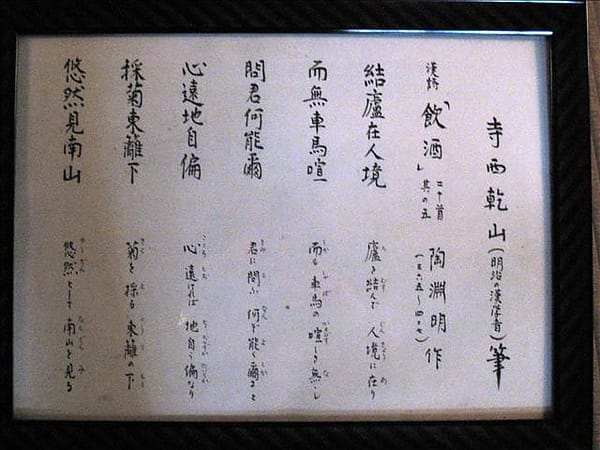 寺西乾山(明治の漢学者)筆
漢詩「飲酒」二十首 其の五 陶淵明作(三六五〜四二七)
結廬在人境 廬を結んで 人境に在り
而無車馬喧 而も 車馬の 喧しき無し
問君何能爾 君に問ふ 何ぞ能く爾ると
心遠地自偏 心 遠ければ 地自ら偏なり
採菊東籬下 菊を採る 東籬の下
悠然見南山 悠然として 南山を見る